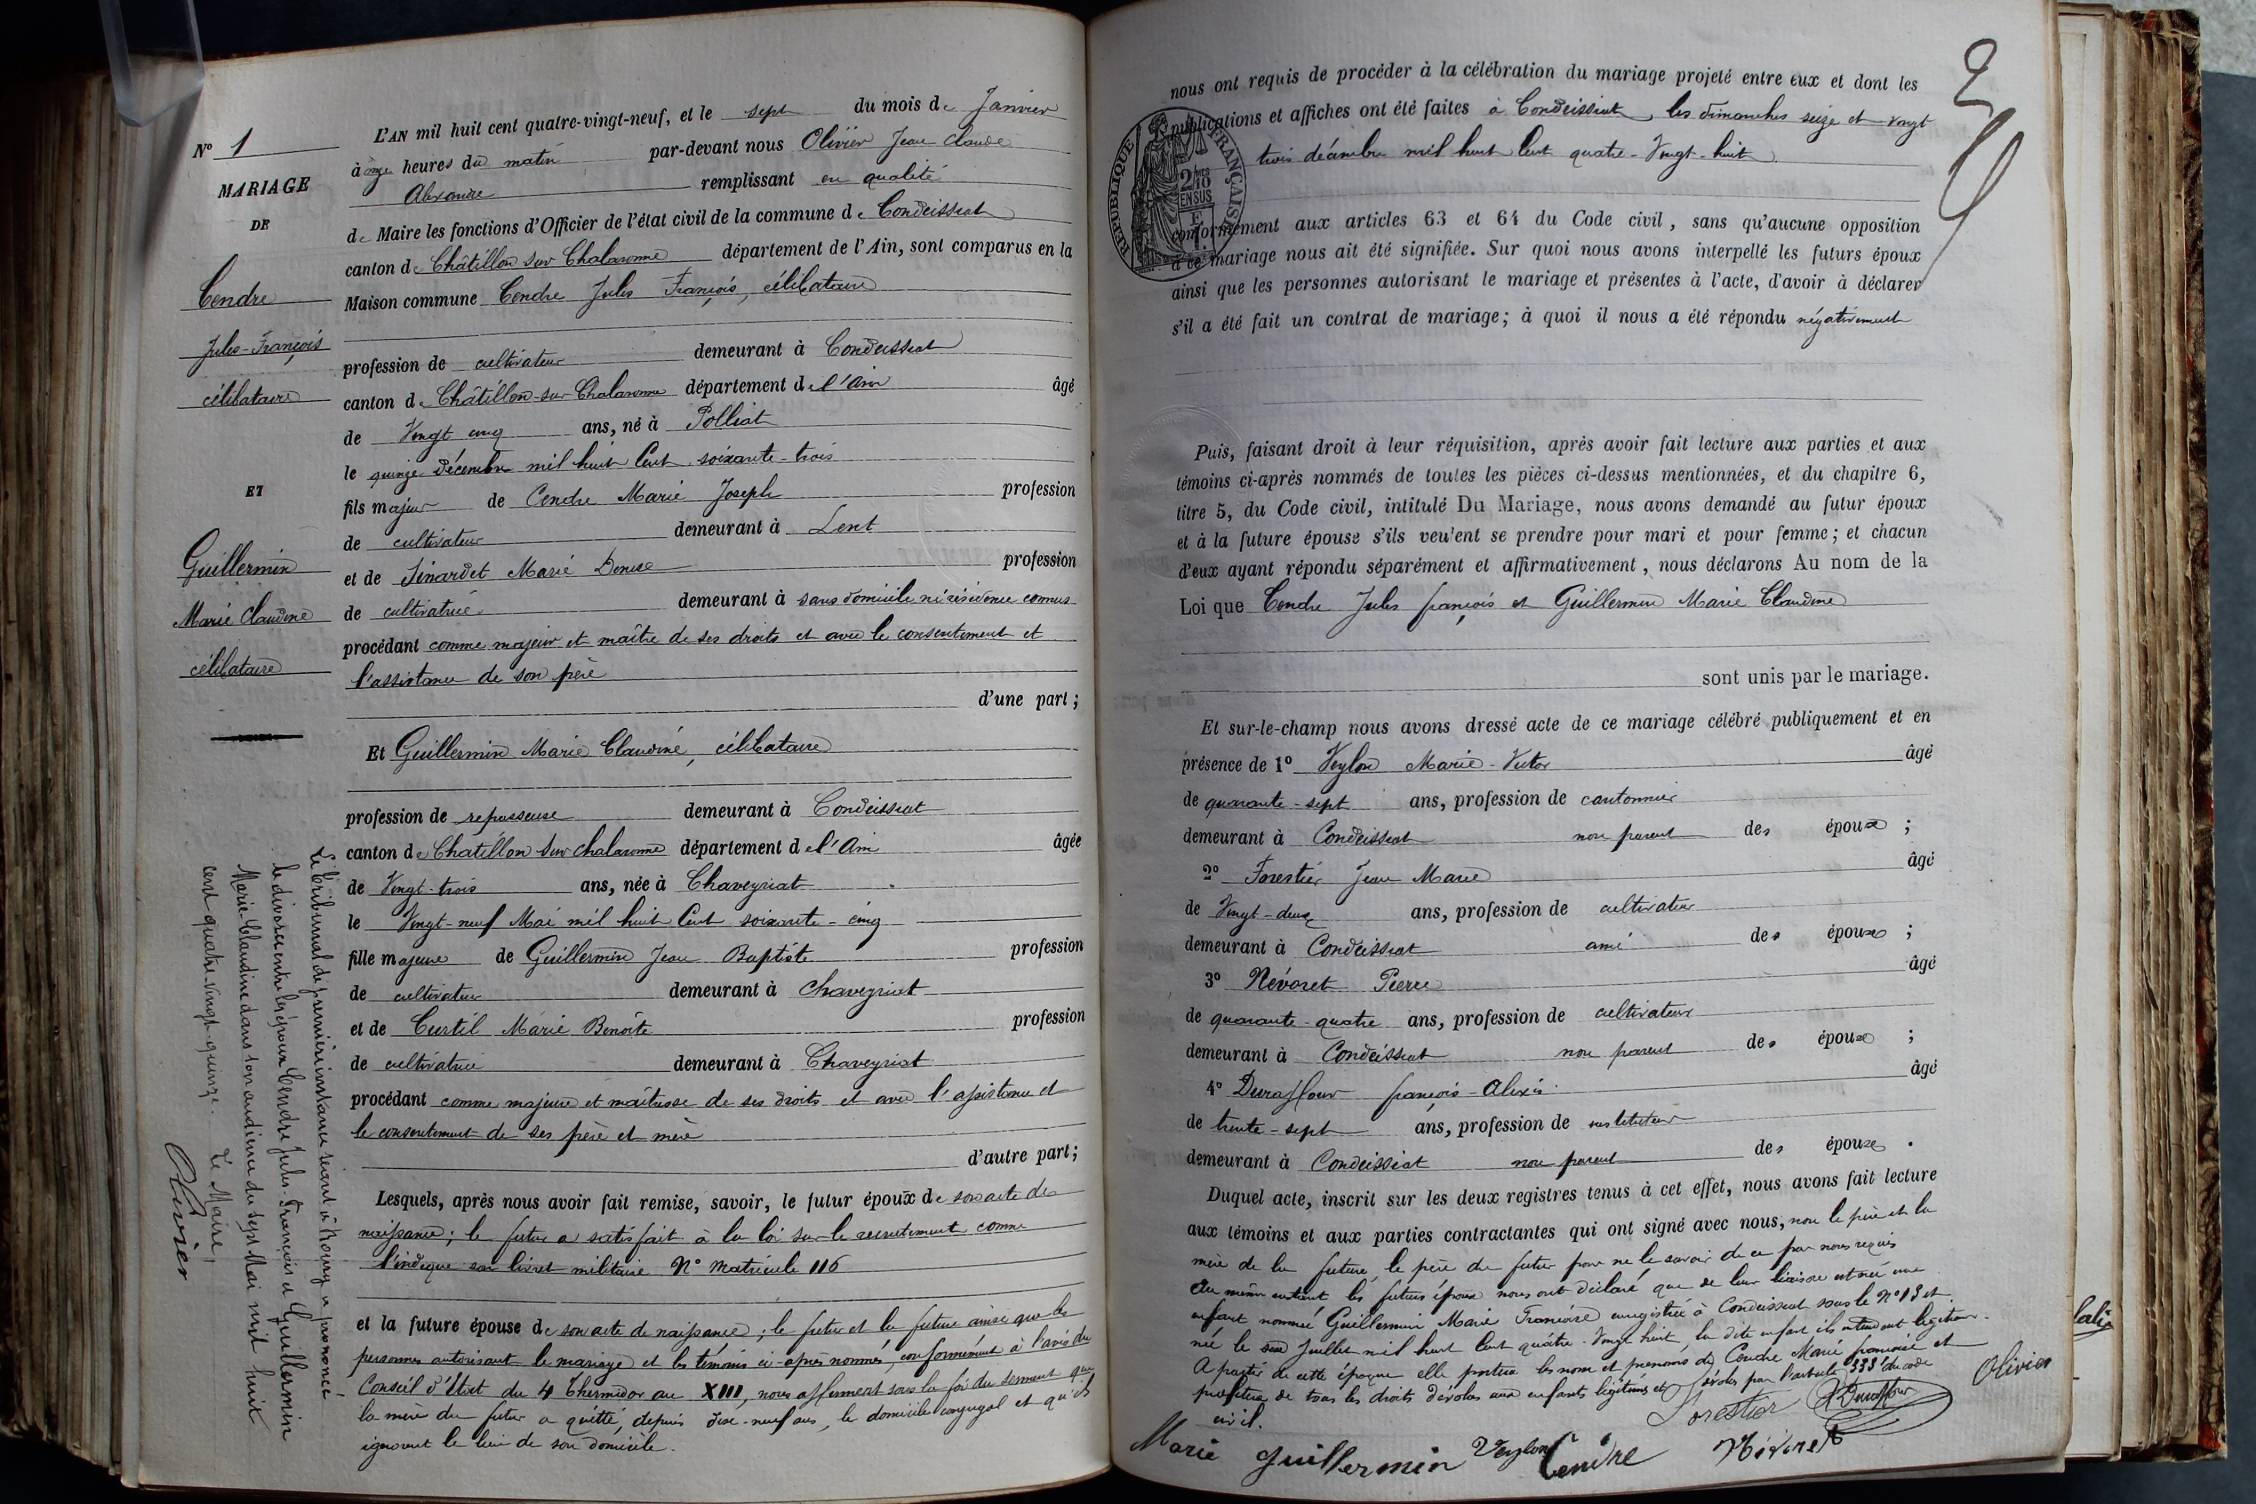 N° 1
MARIAGE
DE
Cendre
Jules-François
célibataire
ET
Guillermin
Marie Claudine
célibataire
Le tribunal de première instance séant à Bourg a prononcé
le divorce entre les époux Cendre Jules-François et Guillermin
Marie-Claudine dans son audience du sept Mai mil huit
cent quatre-vingt-quinze. Le Maire,
Olivier
L'AN mil huit cent quatre-vingt-neuf, et le sept du mois de Janvier
à onze heures du matin par-devant nous Olivier Jean Claude
Alexandre remplissant en qualité
de Maire les fonctions d'Officier de l'état civil de la commune de Condeissiat
canton de Châtillon sur Chalaronne département de l'Ain, sont comparus en la
Maison commune Cendre Jules François, célibataire
profession de cultivateur demeurant à Condeissiat
canton de Châtillon-sur-Chalaronne département de l'Ain âgé
de Vingt cinq ans, né à Polliat
le quinze Décembre mil huit Cent soixante-trois
fils majeur de Cendre Marie Joseph profession
de cultivateur demeurant à Lent
et de Sinardet Marie Denise profession
de cultivatrice demeurant à sans domicile ni résidence connus
procédant comme majeur et maître de ses droits et avec le consentement et
l'assistance de son père
d'une part ;
Et Guillermin Marie Claudine, célibataire
profession de repasseuse demeurant à Condeissiat
canton de Chatillon sur chalaronne département de l'Ain âgée
de Vingt-trois ans, née à Chaveyriat
le Vingt-neuf Mai mil huit Cent soixante-cinq
fille majeure de Guillermin Jean Baptiste profession
de cultivateur demeurant à Chaveyriat
et de Curtil Marie Benoîte profession
de cultivatrice demeurant à Chaveyriat
procédant comme majeure et maîtresse de ses droits et avec l'assistance et
le consentement de ses père et mère
d'autre part ;
Lesquels, après nous avoir fait remise, savoir, le futur époux de son acte de
naissance ; le futur a satisfait à la loi sur le recrutement comme
l'indique son livret militaire N° Matricule 116
et la future épouse de son acte de naissance ; le futur et la future ainsi que les
personnes autorisant le mariage et les témoins ci-après nommés, conformément à l'avis du
Conseil d'Etat du 4 Thermidor an XIII, nous affirment sous la foi du serment que
la mère du futur a quitté, depuis dix-neuf ans, le domicile conjugal et qu'ils
ignorent le lieu de son domicile.
2
nous ont requis de procéder à la célébration du mariage projeté entre eux et dont les
publications et affiches ont été faites à Condeissiat, les dimanches seize et vingt
trois décembre mil huit Cent quatre-Vingt-huit
RÉPUBLIQUE FRANÇAISE
conformément aux articles 63 et 64 du Code civil, sans qu'aucune opposition
à ce mariage nous ait été signifiée. Sur quoi nous avons interpellé les futurs époux
ainsi que les personnes autorisant le mariage et présentes à l'acte, d'avoir à déclarer
s'il a été fait un contrat de mariage ; à quoi il nous a été répondu négativement
Puis, faisant droit à leur réquisition, après avoir fait lecture aux parties et aux
témoins ci-après nommés de toutes les pièces ci-dessus mentionnées, et du chapitre 6,
titre 5, du Code civil, intitulé Du Mariage, nous avons demandé au futur époux
et à la future épouse s'ils veulent se prendre pour mari et pour femme ; et chacun
d'eux ayant répondu séparément et affirmativement, nous déclarons Au nom de la
Loi que Cendre Jules françois et Guillermin Marie Claudine
sont unis par le mariage.
Et sur-le-champ nous avons dressé acte de ce mariage célébré publiquement et en
présence de 1° Veylon Marie-Victor âgé
de quarante-sept ans, profession de cantonnier
demeurant à Condeissiat non parent des époux ;
2° Forestier Jean Marie âgé
de Vingt-deux ans, profession de cultivateur
demeurant à Condeissiat ami des époux ;
3° Névoret Pierre âgé
de quarante-quatre ans, profession de cultivateur
demeurant à Condeissiat non parent des époux ;
4° Duraffour françois-Alexis âgé
de trente-sept ans, profession de instituteur
demeurant à Condeissiat non parent des époux.
Duquel acte, inscrit sur les deux registres tenus à cet effet, nous avons fait lecture
aux témoins et aux parties contractantes qui ont signé avec nous, non le père et la
mère de la future, le père du futur pour ne le savoir de ce par nous requis
Au même instant les futurs époux nous ont déclaré que de leur liaison est née une
enfant nommée Guillermin Marie Françoise enregistrée à Condeissiat sous le N° 13 et
née le Juillet mil huit Cent quatre-Vingt huit la dite enfant ils entendent légitimer.
A partir de cette époque elle portera les nom et prénoms de Cendre Marie françoise et
profitera de tous les droits dévolus aux enfants légitimes et dévolus par l'article 333 du code
civil.
Forestier Duraffour Olivier
Marie Guillermin Veylon Cendre Névoret